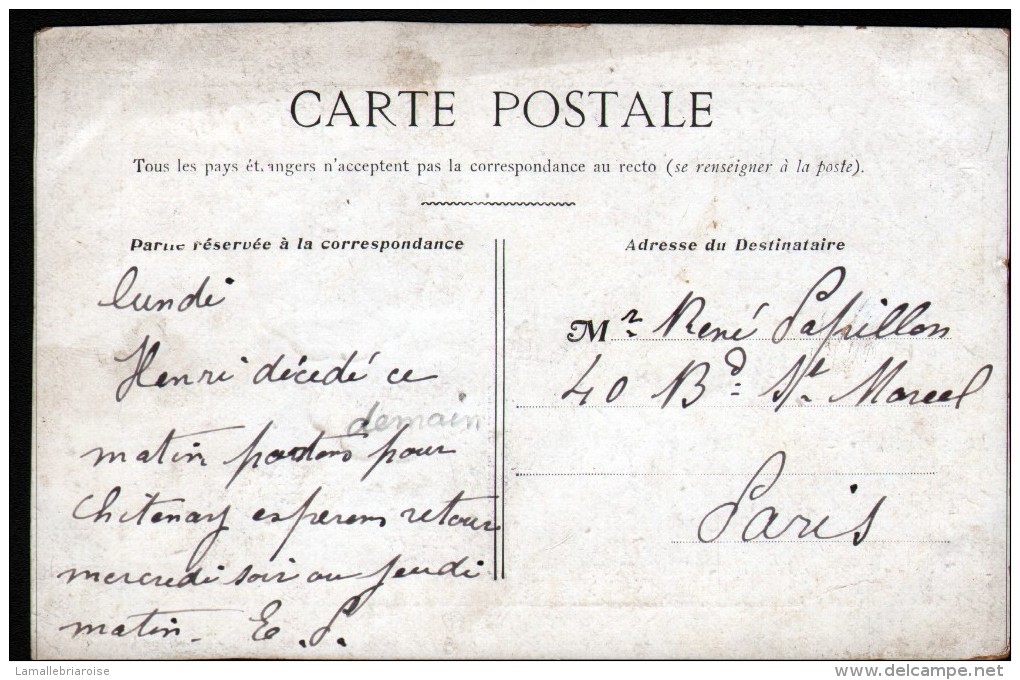 CARTE POSTALE
Tous les pays étrangers n'acceptent pas la correspondance au recto (se renseigner à la poste).
Partie réservée à la correspondance
lundi
Henri décédé ce
demain
matin partons pour
Chitenay esperons retour
mercredi soir ou jeudi
matin. E. P.
Adresse du Destinataire
Mr. René Papillon
40 Bd. St. Marcel
Paris
Lamallebriaroise
www.delcampe.net